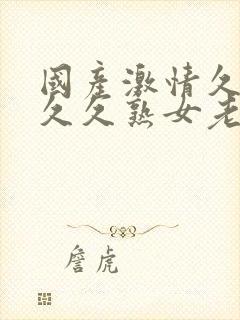 國產激情久
久久熟女老
詹虎